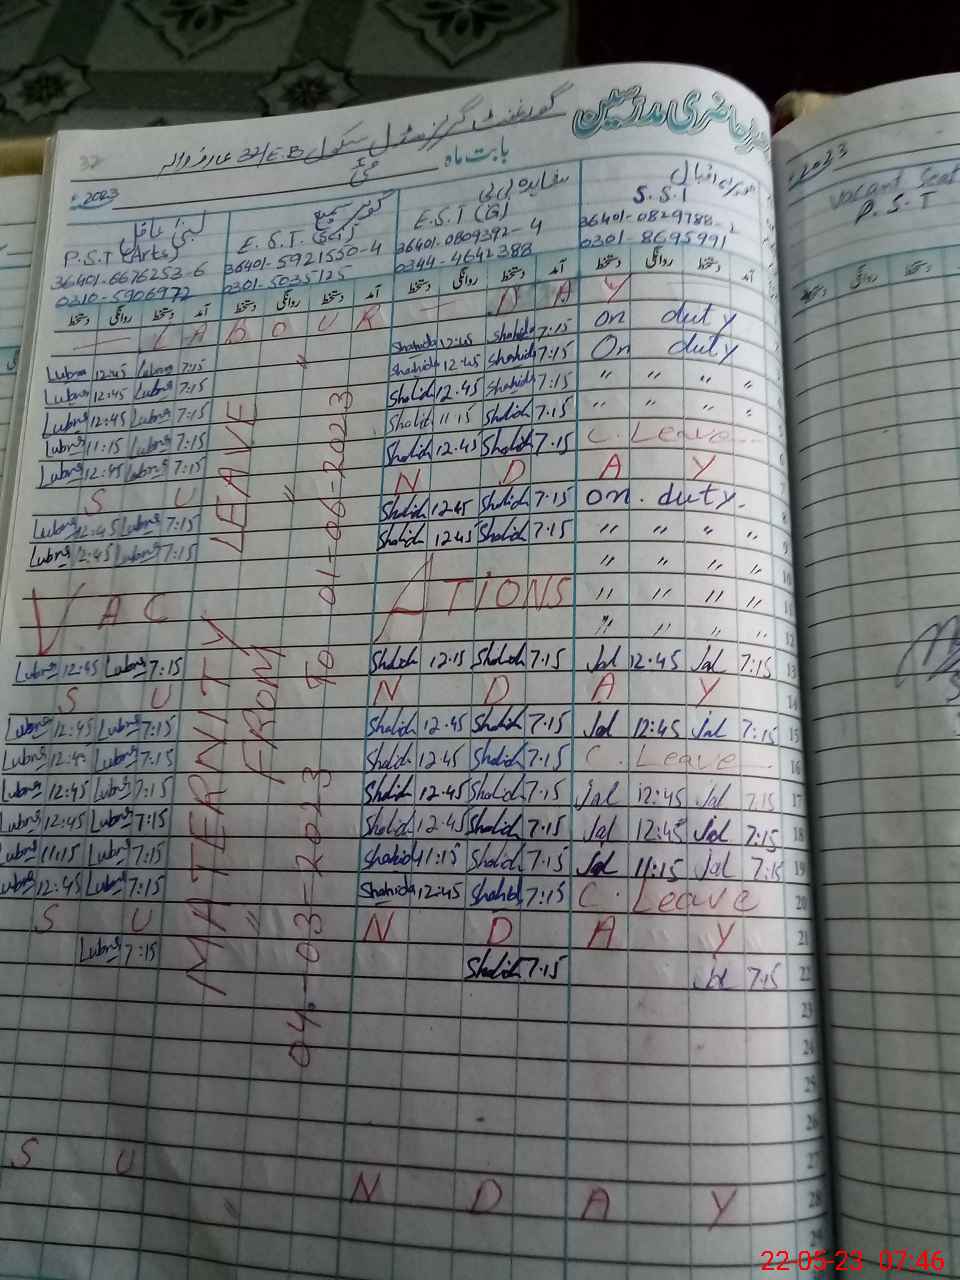 32
گورنمنٹ گرلز مڈل سکول 32/E.B عارفوالہ
بابت ماہ مئی 2023
S.S.T
36401-0829788-2
0301-8695991
E.S.T (G)
36401-0809392-4
0344-4642388
گوہر سمیع
E.S.T. (Sci)
36401-5921550-4
0301-5035125
لبنیٰ عاقل
P.S.T (Arts)
36401-6676253-6
0310-5906972
دستخط روانگی دستخط آمد دستخط روانگی دستخط آمد دستخط روانگی دستخط آمد دستخط روانگی دستخط آمد
LABOUR - DAY
Lubna 12:45 Lubna 7:15 Shahida 12:45 Shahida 7:15 on duty
Lubna 12:45 Lubna 7:15 Shahida 12:45 Shahida 7:15 On duty
Lubna 12:45 Lubna 7:15 Shahida 12.45 Shahida 7:15 " " " "
Lubna 11:15 Lubna 7:15 Shahida 11:15 Shahida 7.15 " " " "
Lubna 12:45 Lubna 7:15 Shahida 12.45 Shahida 7.15 C. Leave
S U N D A Y
Lubna 12:45 Lubna 7:15 Shahida 12.45 Shahida 7.15 on duty.
Lubna 12:45 Lubna 7:15 Shahida 12.45 Shahida 7.15 " " " "
" " " "
VACATIONS " " " "
" " " "
Lubna 12:45 Lubna 7:15 Shahida 12.15 Shahida 7.15 Jal 12:45 Jal 7:15 13
S U N D A Y 14
Lubna 12:45 Lubna 7:15 Shahida 12.45 Shahida 7.15 Jal 12:45 Jal 7:15 15
Lubna 12:45 Lubna 7:15 Shahida 12.45 Shahida 7.15 C. Leave 16
Lubna 12:45 Lubna 7:15 Shahida 12.45 Shahida 7.15 Jal 12:45 Jal 7:15 17
Lubna 12:45 Lubna 7:15 Shahida 12.45 Shahida 7.15 Jal 12:45 Jal 7:15 18
Lubna 11:15 Lubna 7:15 Shahida 11:15 Shahida 7.15 Jal 11:15 Jal 7:15 19
Lubna 12:45 Lubna 7:15 Shahida 12.45 Shahida 7.15 C. Leave 20
S U N D A Y 21
Lubna 7:15 Shahida 7.15 Jal 7:15 22
23
24
25
26
27
S U N D A Y 28
29
MATERNITY LEAVE
FROM
04-03-2023 to 01-06-2023
2023
Vacant Seat
P.S.T
22-05-23 07:46